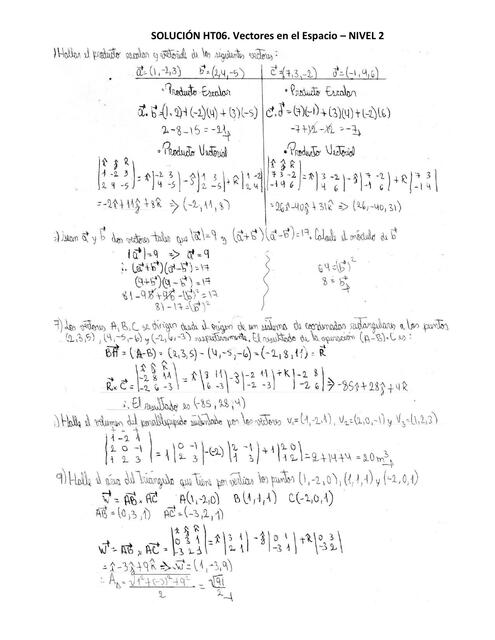 SOLUCIÓN HT06. Vectores en el Espacio – NIVEL 2
1) Hallar el producto escalar y vectorial de los siguientes vectores:
a⃗ = (1,-2,3) b⃗ = (2,4,-5) c⃗ = (7,3,-2) d⃗ = (-1,4,6)
• Producto Escalar • Producto Escalar
a⃗ . b⃗ = (1.2)+(-2)(4)+(3)(-5) c⃗ . d⃗ = (7)(-1)+(3)(4)+(-2)(6)
2-8-15 = -21 -7+12-12 = -7
• Producto Vectorial • Producto Vectorial
= -2x̂+11ŷ+8k̂ ⇒ (-2,11,8) = 26x̂-40ŷ+31k̂ ⇒ (26,-40,31)
Sean a⃗ y b⃗ dos vectores tales que |a⃗|=9 y (a⃗+b⃗)(a⃗-b⃗)=17. Calcule el módulo de b⃗
|a⃗|=9 ⇒ a⃗=9
∴ (a⃗+b⃗)(a⃗-b⃗)=17 64=(b⃗)²
(9+b⃗)(9-b⃗)=17 8=b⃗
81-9b⃗+9b⃗-(b⃗)²=17
81-17=(b⃗)²
7) Los vectores A, B, C se dirigen desde el origen de un sistema de coordenadas rectangulares a los puntos
(2,3,5), (4,-5,-6) y (-2,6,-3) respectivamente. El resultado de la operación (A-B)×C es:
BA⃗ = (A-B) = (2,3,5) - (4,-5,-6) = (-2,8,11) = R⃗
R⃗ x C⃗ = |x̂ ŷ k̂; -2 8 11; -2 6 -3| = x̂|8 11; 6 -3| - ŷ|-2 11; -2 -3| + k̂|-2 8; -2 6| ⇒ -85x̂+28ŷ+4k̂
∴ El resultado es (-85,28,4)
Halle el volumen del paralelepípedo sustentado por los vectores V₁=(1,-2,1), V₂=(2,0,-1) y V₃=(1,2,3)
|1 -2 1; 2 0 -1; 1 2 3| = 1|0 -1; 2 3| -(-2)|2 -1; 1 3| + 1|2 0; 1 2| = 2+14+4 = 20m³
9) Halle el área del Triángulo que tiene por vértices los puntos (1,-2,0), (1,1,1) y (-2,0,1)
W⃗ = AB⃗ x AC⃗ A(1,-2,0) B(1,1,1) C(-2,0,1)
AB⃗ = (0,3,1) AC⃗ = (-3,2,1)
W⃗ = AB⃗ x AC⃗ = |x̂ ŷ k̂; 0 3 1; -3 2 1| = x̂|3 1; 2 1| - ŷ|0 1; -3 1| + k̂|0 3; -3 2|
= x̂-3ŷ+9k̂ ⇒ W⃗ = (1,-3,9)
∴ A = √(1²+(-3)²+9²) / 2 = √91 / 2